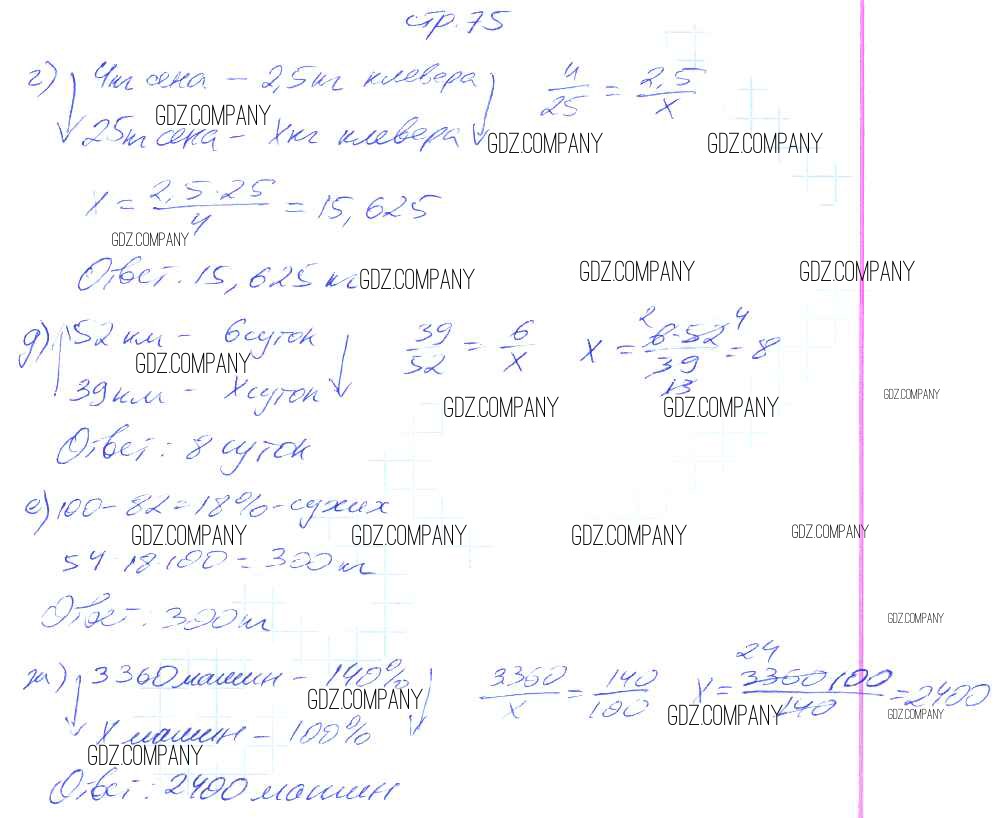 стр. 75
г) 4 кг сена – 2,5 кг клевера 4/25 = 2,5/x
GDZ.COMPANY
25 кг сена – x кг клевера GDZ.COMPANY GDZ.COMPANY
x = 2,5·25/4 = 15,625
GDZ.COMPANY
Ответ. 15,625 кг GDZ.COMPANY GDZ.COMPANY GDZ.COMPANY
д) 52 км – 6 суток 39/52 = 6/x x = 6·52/39 = 8
2 4 13
GDZ.COMPANY
39 км – x суток GDZ.COMPANY GDZ.COMPANY GDZ.COMPANY
Ответ: 8 суток
е) 100 – 82 = 18% – сухих
GDZ.COMPANY GDZ.COMPANY GDZ.COMPANY GDZ.COMPANY
54·18·100 = 300 кг
Ответ: 300 кг GDZ.COMPANY
ж) 3360 машин – 140% 3360/x = 140/100 x = 3360·100/140 = 2400
24
GDZ.COMPANY GDZ.COMPANY GDZ.COMPANY
x машин – 100%
GDZ.COMPANY
Ответ: 2400 машин